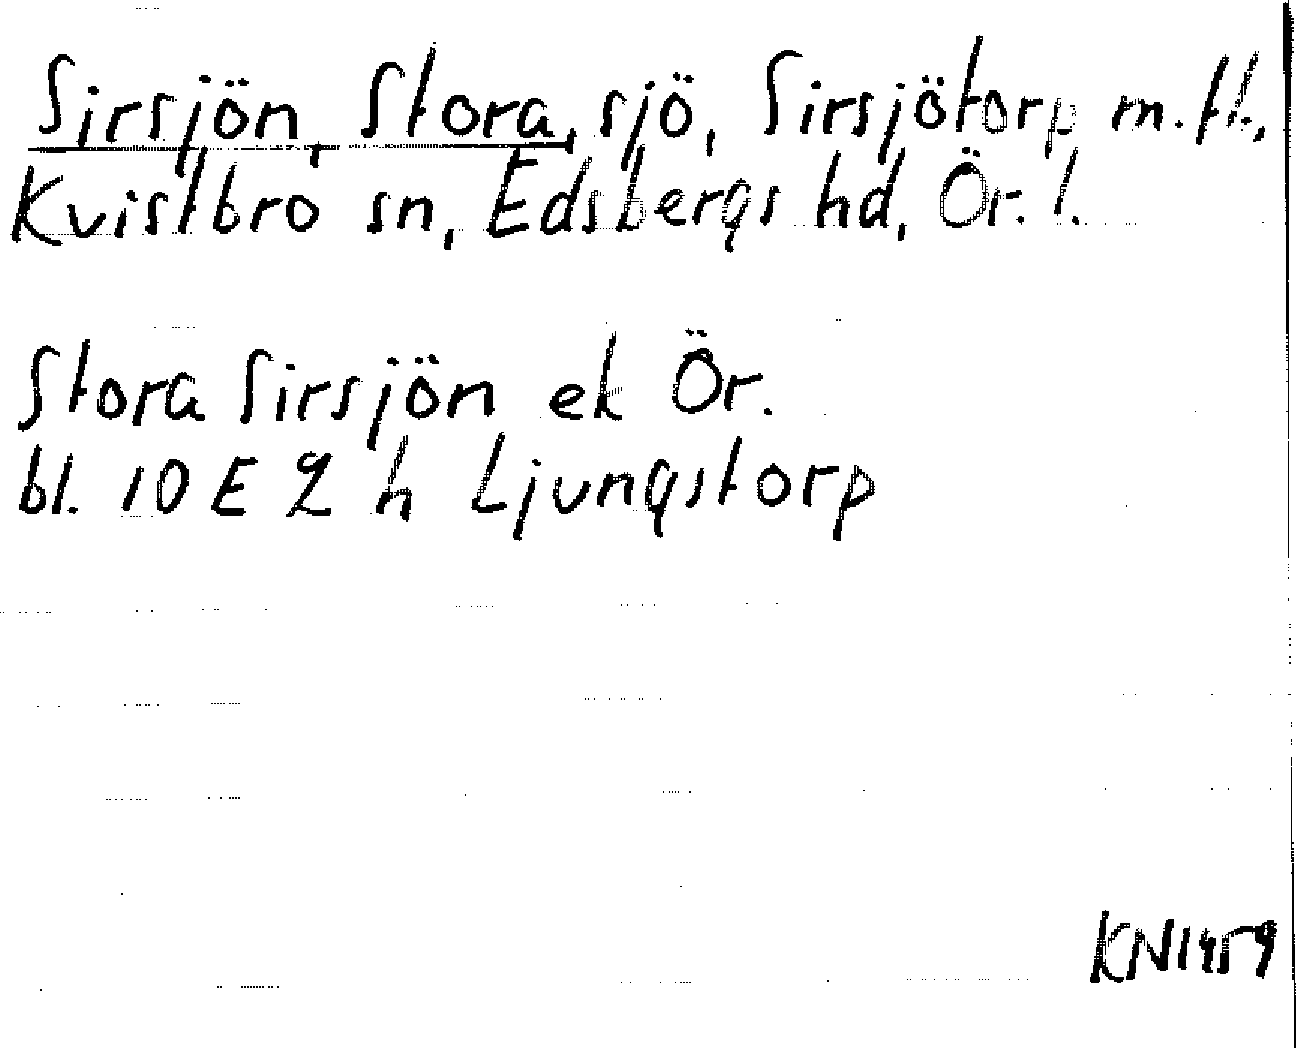 Sirsjön, Stora, sjö, Sirsjötorp m.fl.,
Kvistbro sn, Edsbergs hd, Ör. l.
Stora Sirsjön ek Ör.
bl. 10 E 2 h Ljungstorp
KN1959